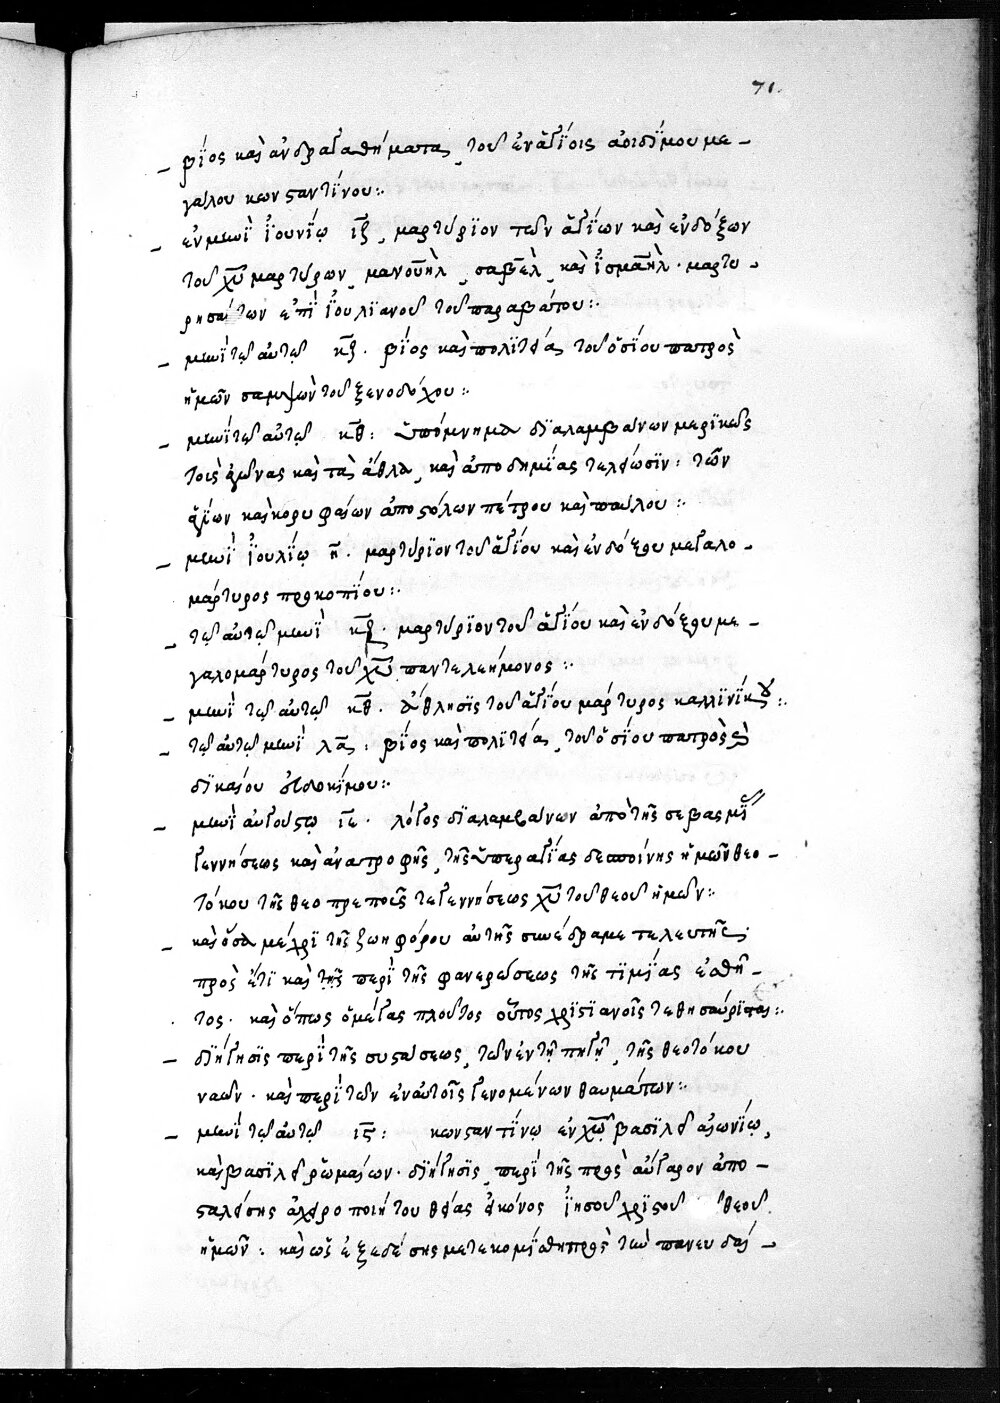 71.
– βίος καὶ ἀνδραγαθήματα, τοῦ ἐν ἁγΐοις ἀοιδΐμου με –
γάλου κωνσταντΐνου:·
– ἐν μηνῒ ἰουνΐῳ ιζ̄, μαρτύρϊον τῶν ἁγΐων καὶ ἐνδόξων
τοῦ χ̅υ̅ μαρτύρων, μανουὴλ, σαβὲλ, καὶ ἰσμαὴλ· μαρτυ –
ρησάντων ἐπῒ ἰουλϊανοῦ τοῦ παραβάτου:·
– μηνῒ τῶ αὐτῶ κζ̄· βΐος καὶ πολϊτεία, τοῦ ὁσΐου πατρὸς
ἡμῶν σαμψὼν τοῦ ξενοδόχου:·
– μηνῒ τῶ αὐτῶ κθ̄: ὑπόμνημα δϊαλαμβάνων μερϊκῶς
τοὺς ἀγῶνας καὶ τὰ ἆθλα, καὶ ἀποδημΐας τελείωσϊν: τῶν
ἁγΐων καὶ κορυφαίων ἀποστόλων πέτρου καὶ παύλου:·
– μηνῒ ἰουλΐῳ η̄· μαρτύρϊον τοῦ ἁγΐου καὶ ἐνδόξου μεγαλο –
μάρτυρος προκοπΐου:·
– τῶ αὐτῶ μηνῒ κζ̄· μαρτύρϊον τοῦ ἁγΐου καὶ ἐνδόξου με –
γαλομάρτυρος τοῦ χ̅υ̅ παντελεήμονος:·
– μηνῒ τῶ αὐτῶ κθ̄· ἄθλησϊς τοῦ ἁγΐου μάρτυρος καλλϊνΐκου:·
– τῶ αὐτῶ μηνῒ λᾱ: βΐος καὶ πολϊτεία, τοῦ ὁσΐου πατρὸς καὶ
δϊκαίου εὐδοκΐμου:·
– μηνῒ αὐγούστῳ ιε̄· λόγος δϊαλαμβάνων ἀπὸ τῆς σεβασμΐου
γεννήσεως καὶ ἀναστροφῆς, τῆς ὑπεραγΐας δεσποίνης ἡμῶν θεο –
τόκου τῆς θεοπρεποῦς τε γεννήσεως χ̅υ̅ τοῦ θεοῦ ἡμῶν:·
– καὶ ὅσα μέχρϊ τῆς ζωηφόρου αὐτῆς συνέδραμε τελευτῆς;
πρὸς ἔτϊ καὶ τῆς περὶ τῆς φανερώσεως τῆς τϊμΐας ἐσθῆ –
τος· καὶ ὅπως ὁ μέγας πλοῦτος οὗτος χρϊστϊανοῖς τεθησαύρϊσται:·
– δϊήγησϊς περῒ τῆς συστάσεως, τῶν ἐν τῇ πηγῇ, τῆς θεοτόκου
ναῶν· καὶ περῒ τῶν ἐν αὐτοῖς γενομένων θαυμάτων:·
– μηνῒ τῶ αὐτῶ ιϛ̄: κωνσταντΐνῳ ἐν χ̅ω̅ βασϊλεῖ αἰωνΐῳ,
καὶ βασϊλεῖ ῥωμαίων· δϊήγησϊς, περῒ τῆς πρὸς αὔγαρον ἀπο –
σταλείσης ἀχειροποιήτου θείας εἰκόνος ἰησοῦ χρϊστοῦ θεοῦ
ἡμῶν: καὶ ὡς ἐξ ἐδέσης μετεκομΐσθη πρὸς τὴν πανευδαί –